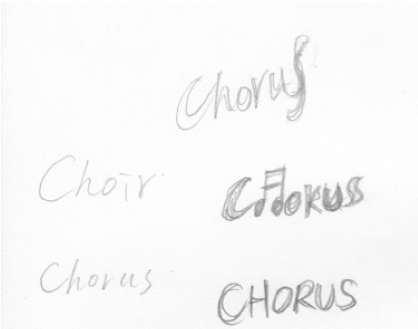 Chorus
Choir
CHORUS
Chorus
CHORUS